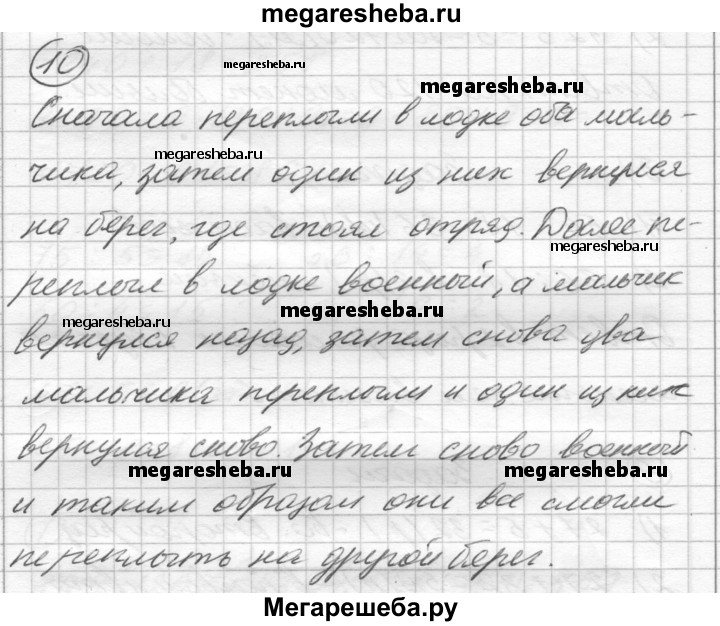 megaresheba.ru
10
megaresheba.ru
megaresheba.ru
Сначала переплыли в лодке оба маль-
megaresheba.ru
чика, затем один из них вернулся
на берег, где стоял отряд. Далее пе-
megaresheba.ru
реплыл в лодке военный, а мальчик
megaresheba.ru
megaresheba.ru
вернулся назад, затем снова два
мальчика переплыли и один из них
вернулся сново. Затем сново военный
megaresheba.ru
megaresheba.ru
и таким образом они все смогли
переплыть на другой берег.
Мегарешеба.ру